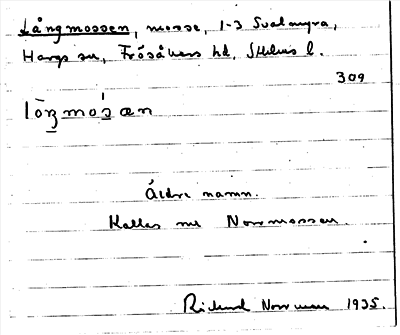 Långmossen, mosse, 1-3 Svalmyra,
Hargs sn, Frösåkers hd, Sthlms l.
309
lòŋmos̀æn
Äldre namn.
Kallas nu Norrmossen.
Rickard Norrman 1935.